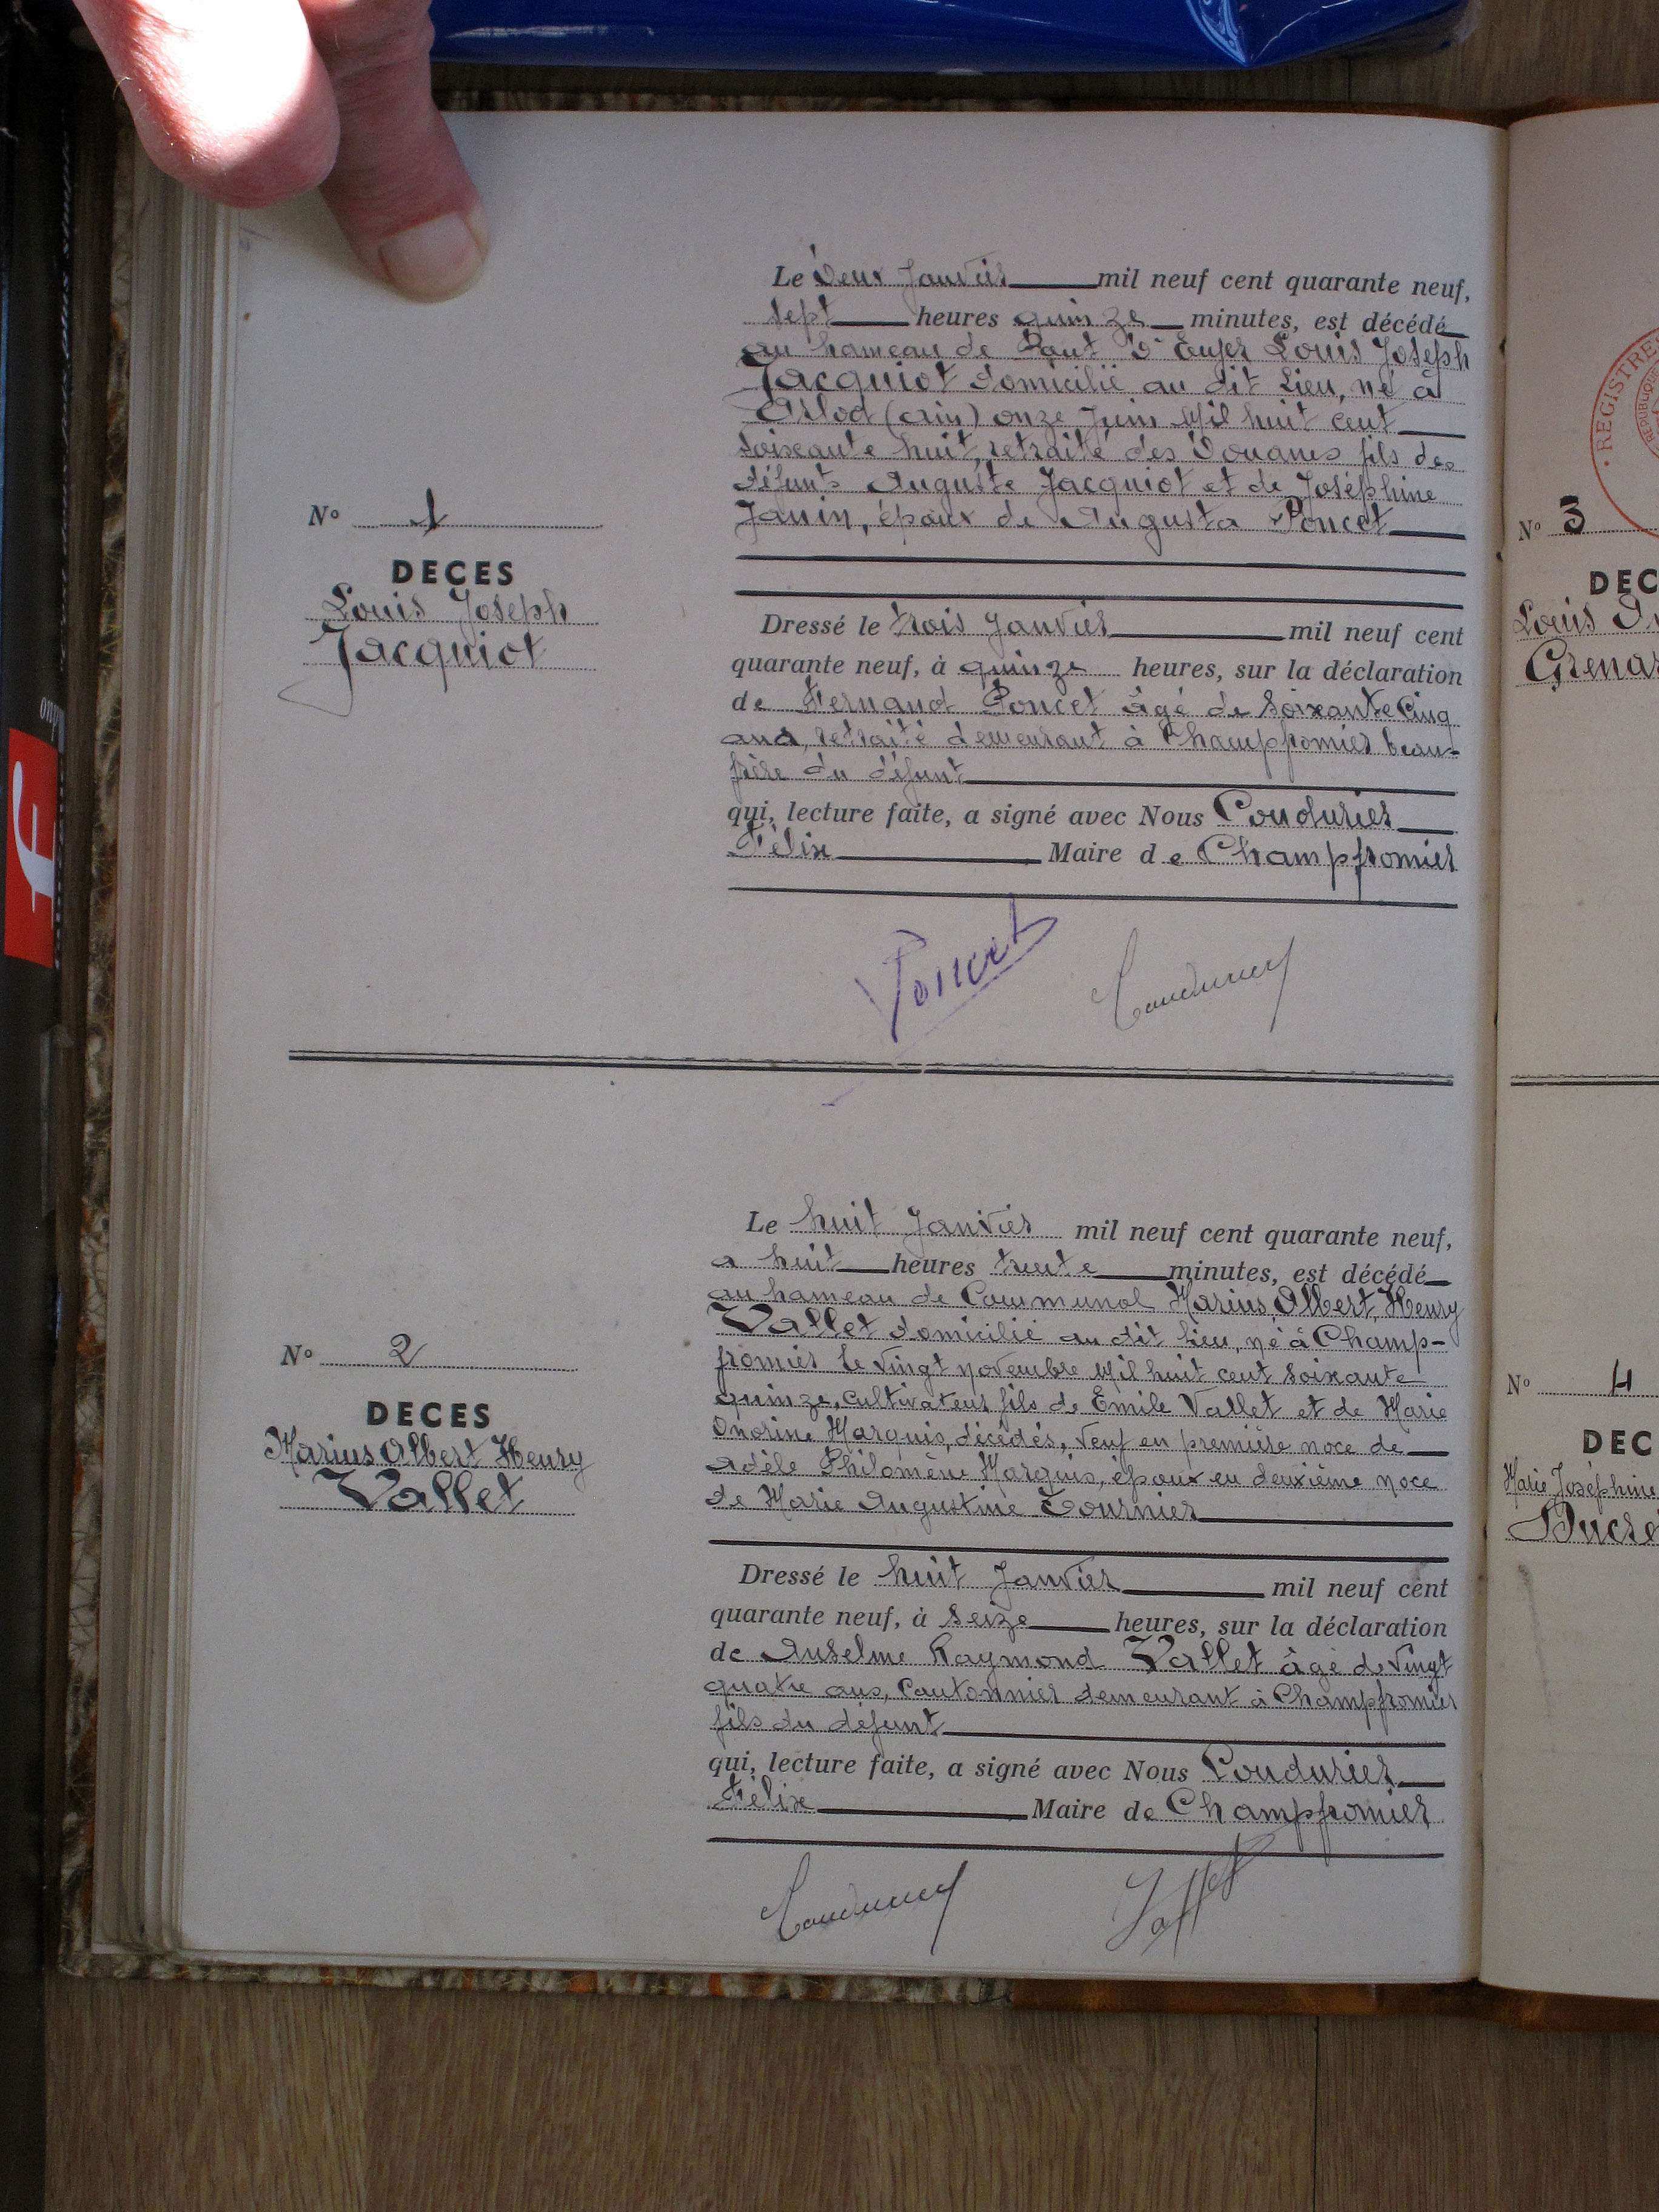 Le deux Janvier mil neuf cent quarante neuf,
sept heures quinze minutes, est décédé
au hameau de Pont d'Enfer Louis Joseph
Jacquiot domicilié au dit Lieu, né à
Arlod (ain) onze Juin Mil huit cent
soixante huit, retraité des Douanes fils des
défunts Auguste Jacquiot et de Joséphine
Janin, époux de Augusta Poncet
N° 1
DECES
Louis Joseph
Jacquiot
Dressé le trois Janvier mil neuf cent
quarante neuf, à quinze heures, sur la déclaration
de Fernand Poncet âgé de Soixante Cinq
ans, retraité demeurant à Champfromier beau-
frère du défunt
qui, lecture faite, a signé avec Nous Coudurier
Félix Maire de Champfromier
Poncet
Coudurier
Le huit Janvier mil neuf cent quarante neuf,
a huit heures trente minutes, est décédé
au hameau de Communal Marius, Albert, Henry
Vallet domicilié au dit lieu, né à Champ-
fromier le vingt novembre Mil huit cent soixante
quinze, cultivateur, fils de Emile Vallet et de Marie
Onorine Marquis, décédés, Veuf en première noce de
Adèle Philomène Marquis, époux en deuxième noce
de Marie Augustine Tournier
N° 2
DECES
Marius Albert Henry
Vallet
Dressé le huit Janvier mil neuf cent
quarante neuf, à Seize heures, sur la déclaration
de Anselme Raymond Vallet âgé de Vingt
quatre ans, Cantonnier demeurant à Champfromier
fils du défunt
qui, lecture faite, a signé avec Nous Coudurier
Félix Maire de Champfromier
Coudurier
Vallet
REGISTRE
N° 3
DEC
Louis
Grenar
N° 4
DEC
Marie Joséphine
Ducre